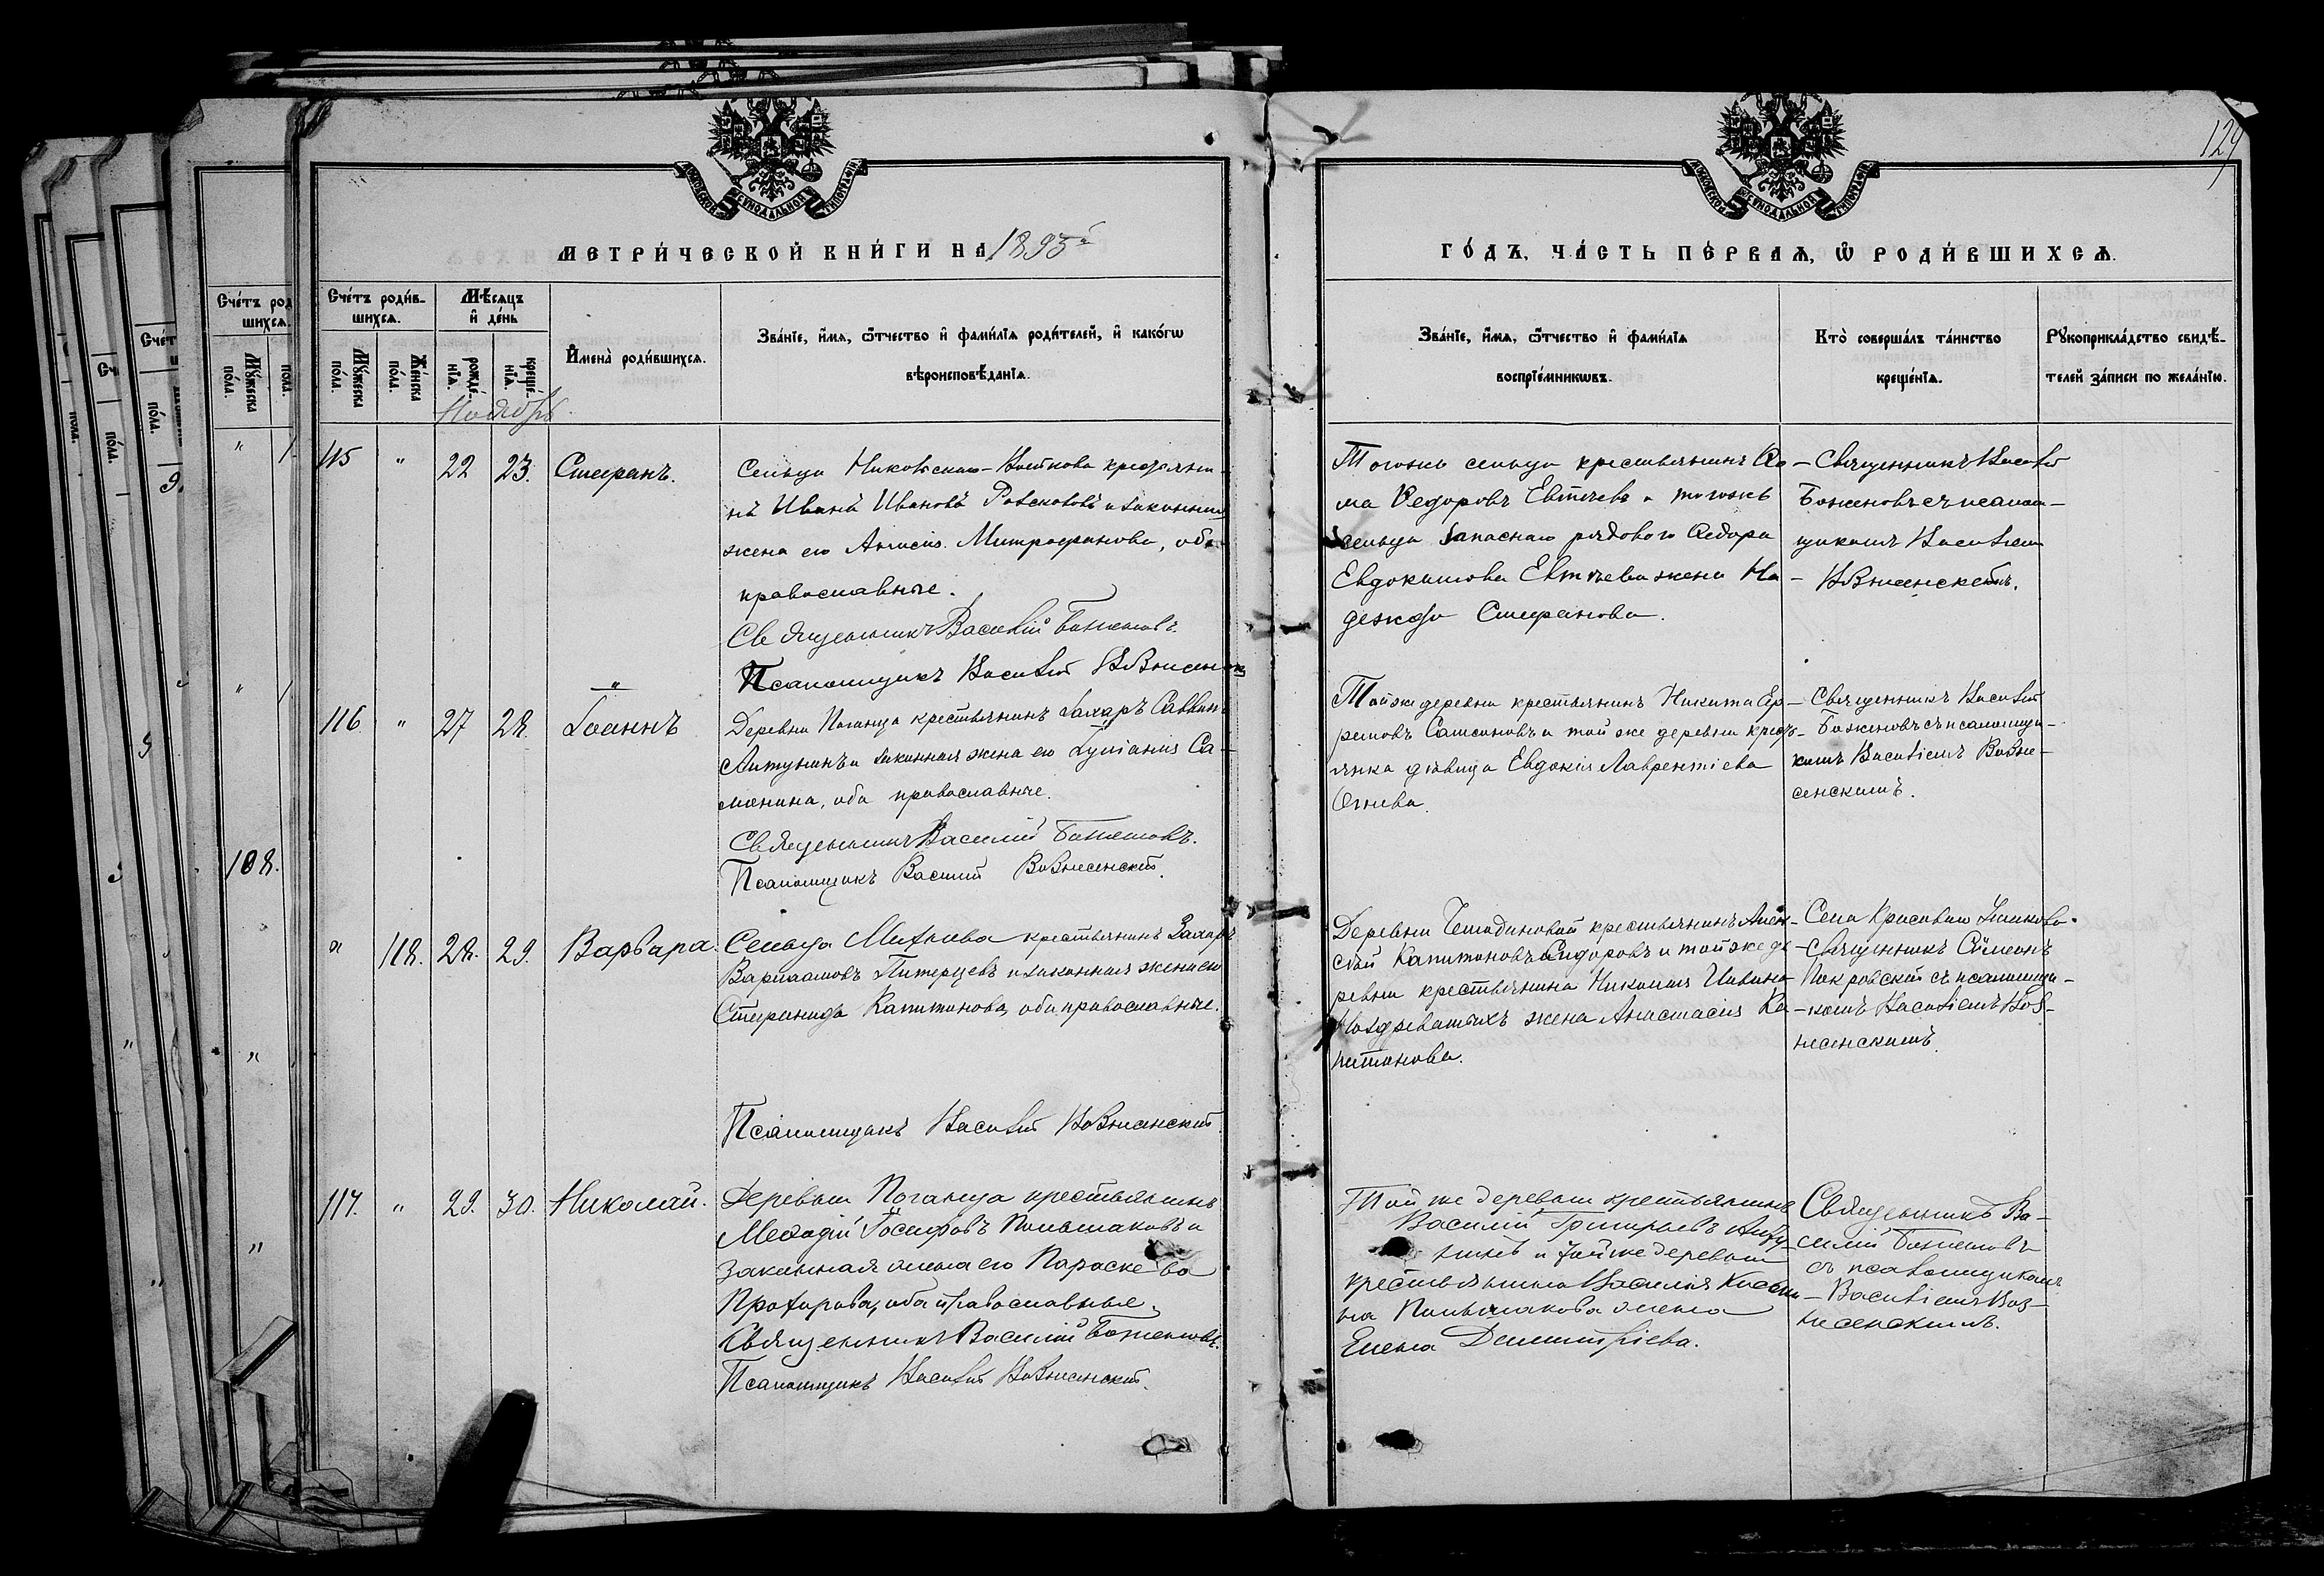 129
МЕТРИ́ЧЕСКОЙ КНИ́ГИ НА 1895й
ГО́ДЪ, ЧА́СТЬ ПЕ́РВАѦ, Ѡ҆ РОДИ́ВШИХСѦ.
Сче́тъ роди́в-
шихсѧ.
Мꙋ́жеска
по́ла.
Же́нска
по́ла.
Мѣ́сѧцъ
и҆ де́нь
рожде́-
нїѧ.
креще́-
нїѧ.
И҆мена̀ роди́вшихсѧ.
Зва́нїе, и҆́мѧ, ѻ҆́тчество и҆ фами́лїѧ роди́телей, и҆ како́гѡ
вѣроисповѣ́данїѧ.
Зва́нїе, и҆́мѧ, ѻ҆́тчество и҆ фами́лїѧ
воспрїе́мникѡвъ.
Кто̀ соверша́лъ та́инство
креще́нїѧ.
Рꙋкоприкла́дство свидѣ́-
телей за́писи по жела́нїю.
Ноябрь.
115 " 22 23. Стефанъ.
Сельца крестьяни-
нъ Иванъ Ивановъ и законная
жена его Анисія Митрофанова, оба
православные.
Священникъ Василій Боженовъ.
Псаломщикъ Василій Вознесенскій
Тогоже сельца крестьянинъ
ма Ѳедоровъ Евтѣевъ и тогожъ
сельца запаснаго рядового Ѳедора
Евдокимова Евтѣева жена На-
дежда Стефанова.
Священникъ Василій
Боженовъ съ псалом-
щикомъ Василіемъ
Вознесенскимъ.
116 " 27 28. Іоаннъ
Деревни Поганца крестьянинъ Захаръ Саввинъ
Антунинъ и законная жена его Са-
монина, оба православные.
Священникъ Василій Боженовъ.
Псаломщикъ Василій Вознесенскій.
Тойже деревни крестьянинъ Никита Еф-
ремовъ Самсоновъ и той же деревни кресть-
янка дѣвица Евдокія Лаврентіева
Огнева.
Священникъ Василій
Боженовъ съ псаломщи-
комъ Василіемъ Возне-
сенскимъ.
" 118. 28. 29. Варвара.
Сельца Митнева крестьянинъ Захаръ
Варлаамовъ Питерцевъ и законная жена его
Стефанида Капитонова, оба православные.
Псаломщикъ Василій Вознесенскій
Деревни крестьянинъ Алек-
сѣй Капитоновъ Сидоровъ и той же де-
ревни крестьянина Николая Иванова
Ноздреватыхъ жена Анастасія Ка-
питонова.
Села
Священникъ Симеонъ
Покровскій съ псаломщи-
комъ Василіемъ Воз-
несенскимъ.
117. " 29. 30. Николай.
Деревни Поганца крестьянинъ
Меѳодій Іосифовъ Польшаковъ и
законная жена его Параскева
Прохорова, оба православные.
Священникъ Василій Боженовъ.
Псаломщикъ Василій Вознесенскій.
Той же деревни крестьянинъ
Василій Григорьевъ Анту-
нинъ и той же деревни
крестьянина Василія Касьи-
на Польшакова жена
Елена Димитріева.
Священникъ Ва-
силій Боженовъ
съ псаломщикомъ
Василіемъ Воз-
несенскимъ.
108.